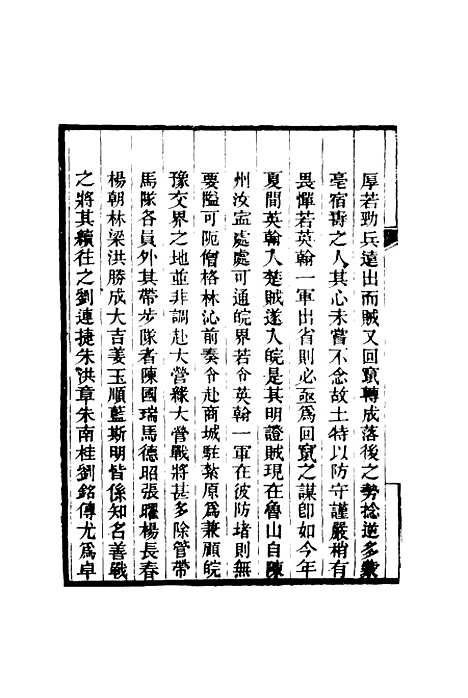 厚若勁兵遠出而賊又回竄轉成落後之勢捻逆多蒙
亳宿壽之人其心未嘗不念故土特以防守謹嚴稍有
畏憚若英翰一軍出省則必亟爲回竄之謀卽如今年
夏間英翰入楚賊遂入皖是其明證賊現在魯山自陳
州汝寗處處可通皖界若令英翰一軍在彼防堵則無
要隘可阨僧格林沁前奏令赴商城駐紮原爲兼顧皖
豫交界之地並非調赴大營緣大營戰將甚多除管帶
馬隊各員外其帶步隊者陳國瑞馬德昭張曜楊長春
楊朝林梁洪勝成大吉姜玉順藍斯明皆係知名善戰
之將其續往之劉連捷朱洪章朱南桂劉銘傳尤爲卓